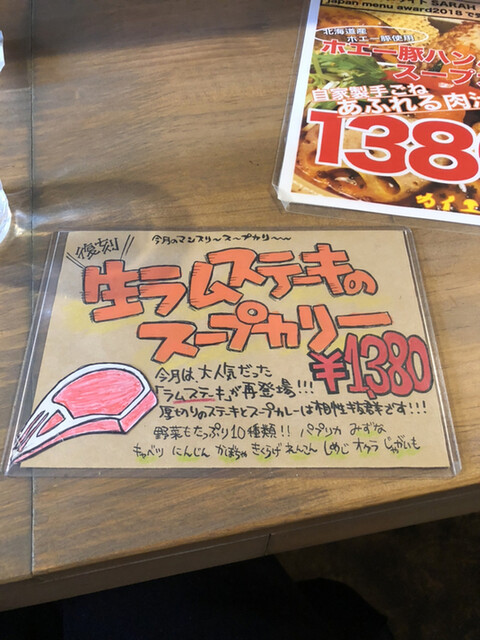 SARAH
japan menu award2018で
北海道産
ホエー豚使用
ホエー豚ハン
スープ
自家製手ごね
あふれる肉汁
138
復刻
今月のマンスリースープカリー
生ラムステーキの
スープカリー
¥1,380
今月は、大人気だった
「ラムステーキ」が再登場!!!
厚切りのステーキとスープカレーは相性抜群です!!!
野菜もたっぷり10種類!! パプリカ みずな
キャベツ にんじん かぼちゃ きくらげ れんこん しめじ オクラ じゃがいも